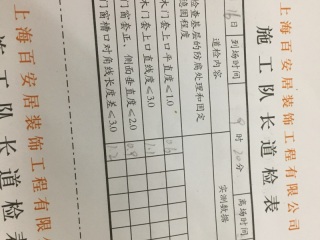 上海百安居装饰工程有限公司
施工队长道检表
16日 到场时间 9时20分 离场时间
道检内容 实测数据
检查基层的防腐处理和固定
稳固程度
木门套上口平直度≤1.0
木门套上口直线度≤3.0
门窗套正、侧面垂直度≤2.0 0.9
门窗槽口对角线长度差≤3.0
上海百安居装饰工程有限
队长道检表